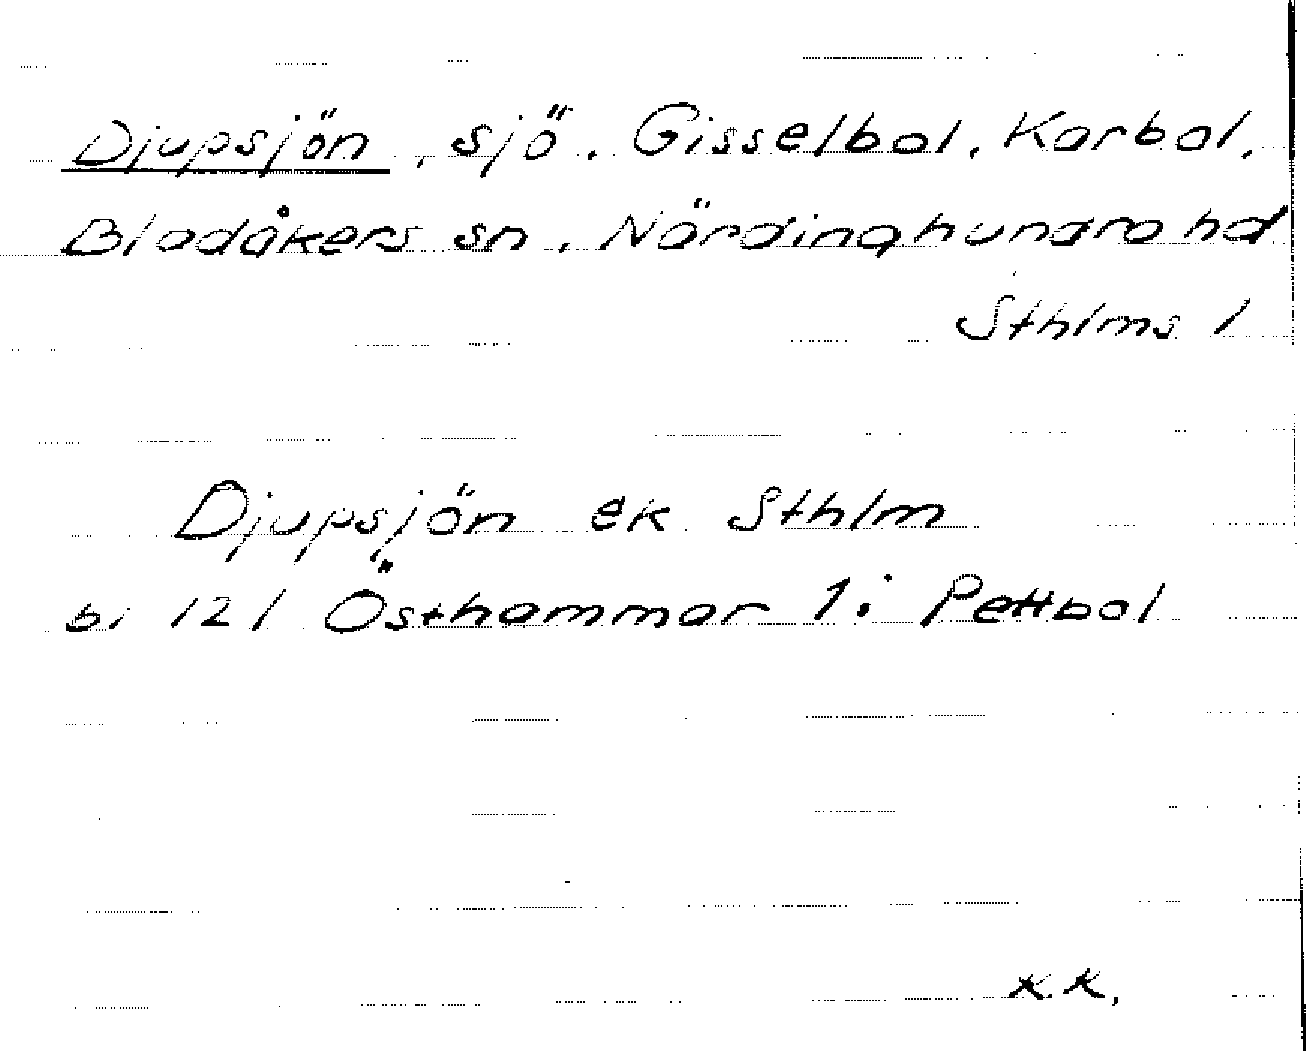 Djupsjön, sjö, Gisselbol, Karbol,
Bladåkers sn, Närdinghundra hd
Sthlms l
Djupsjön ek Sthlm
bi 12 I Östhammar 1: Pettbol
K.K,